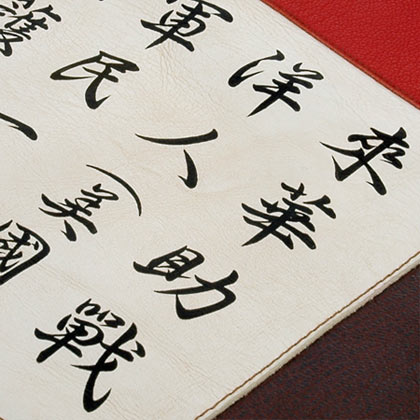 來華助戰
洋人（美國
軍民一
護